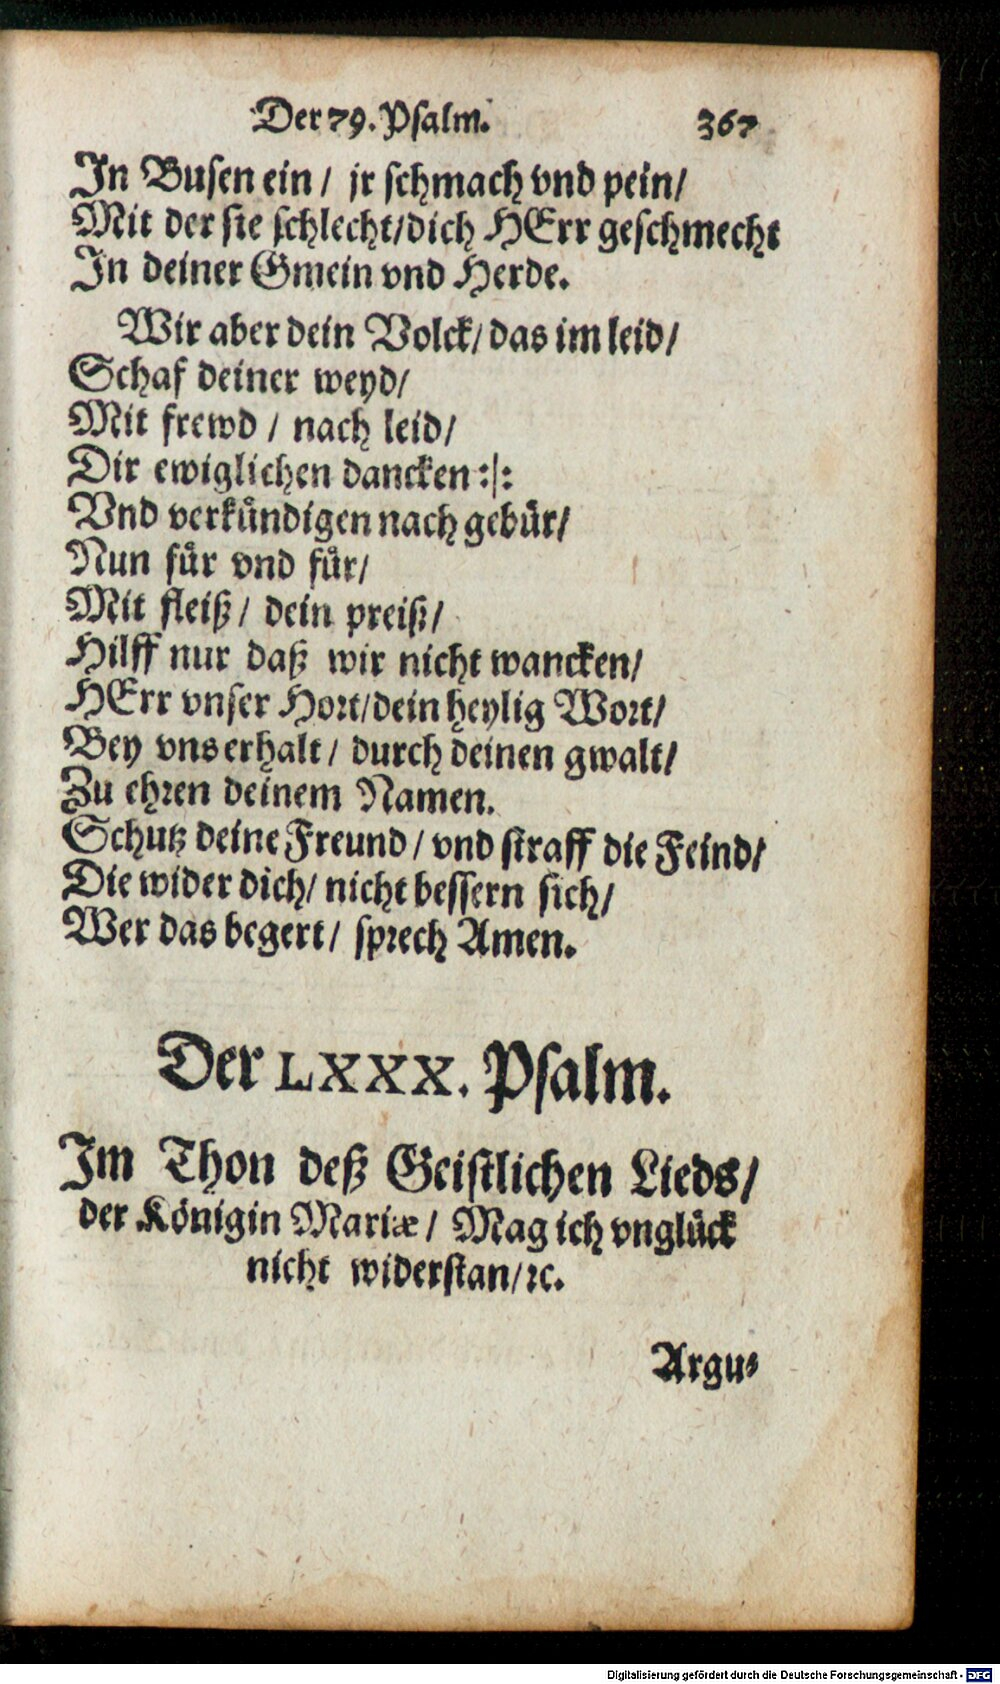 Der 79. Psalm. 367
In Busen ein / jr schmach vnd pein /
Mit der sie schlecht / dich HErr geschmecht
In deiner Gmein vnd Herde.
Wir aber dein Volck / das im leid /
Schaf deiner weyd /
Mit frewd / nach leid /
Dir ewiglichen dancken :|:
Vnd verkündigen nach gebür /
Nun für vnd für /
Mit fleiß / dein preiß /
Hilff nur daß wir nicht wancken /
HErr vnser Hort / dein heylig Wort /
Bey vns erhalt / durch deinen gwalt /
Zu ehren deinem Namen.
Schutz deine Freund / vnd straff die Feind /
Die wider dich / nicht bessern sich /
Wer das begert / sprech Amen.
Der LXXX. Psalm.
Im Thon deß Geistlichen Lieds /
der Königin Mariæ / Mag ich vnglück
nicht widerstan / ꝛc.
Argu⸗
Digitalisierung gefördert durch die Deutsche Forschungsgemeinschaft - DFG